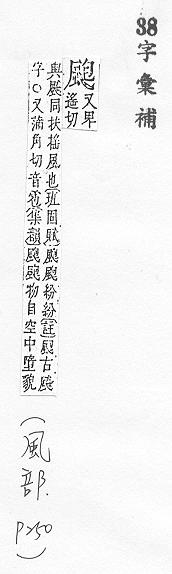 38字彙補
颮
又卑
遙切
與飊同扶搖風也[班固賦]颮颮紛紛[註]颮古飊
字○又蒲角切音雹[集韻]颮颮物自空中墮貌
(風部. P250)